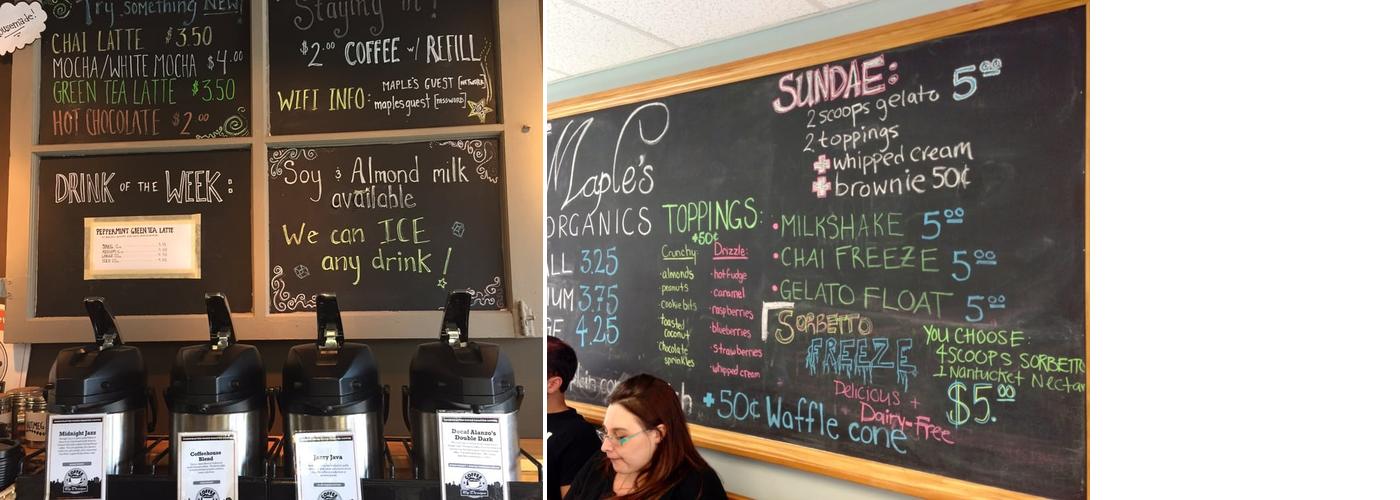 Try something NEW!
CHAI LATTE $3.50
MOCHA/WHITE MOCHA $4.00
GREEN TEA LATTE $3.50
HOT CHOCOLATE $2.00
Staying in?
$2.00 COFFEE w/ REFILL
WIFI INFO: MAPLE'S GUEST [NETWORK]
maplesguest [PASSWORD]
DRINK OF THE WEEK:
PEPPERMINT GREEN TEA LATTE
Soy & Almond milk
available
We can ICE
any drink!
Midnight Jazz
Coffeehouse
Blend
Jazzy Java
Decaf Alanzo's
Double Dark
COFFEE
COFFEE
COFFEE
COFFEE
Maple's
ORGANICS
3.25
3.75
4.25
TOPPINGS:
+50¢
Crunchy:
·almonds
·peanuts
·cookie bits
·toasted
coconut
·chocolate
sprinkles
Drizzle:
·hot fudge
·caramel
·raspberries
·blueberries
·strawberries
·whipped cream
SUNDAE: 5.00
2 scoops gelato
2 toppings
+ whipped cream
+ brownie 50¢
·MILKSHAKE 5.00
·CHAI FREEZE 5.00
·GELATO FLOAT 5.00
SORBETTO
FREEZE
Delicious +
Dairy-Free
YOU CHOOSE:
4 SCOOPS SORBETTO
1 Nantucket Nectar
$5.00
+50¢ Waffle cone